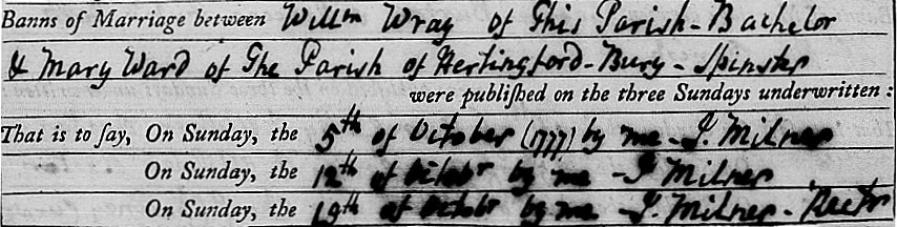 Banns of Marriage between Willm Wray of This Parish - Bachelor
& Mary Ward of The Parish of Hertingford-Bury - Spinster
were publiſhed on the three Sundays underwritten :
That is to ſay, On Sunday, the 5th of October (1777) by me - J. Milner
On Sunday, the 12th of Octobr by me - J Milner
On Sunday, the 19th of Octobr by me - J. Milner - Rector